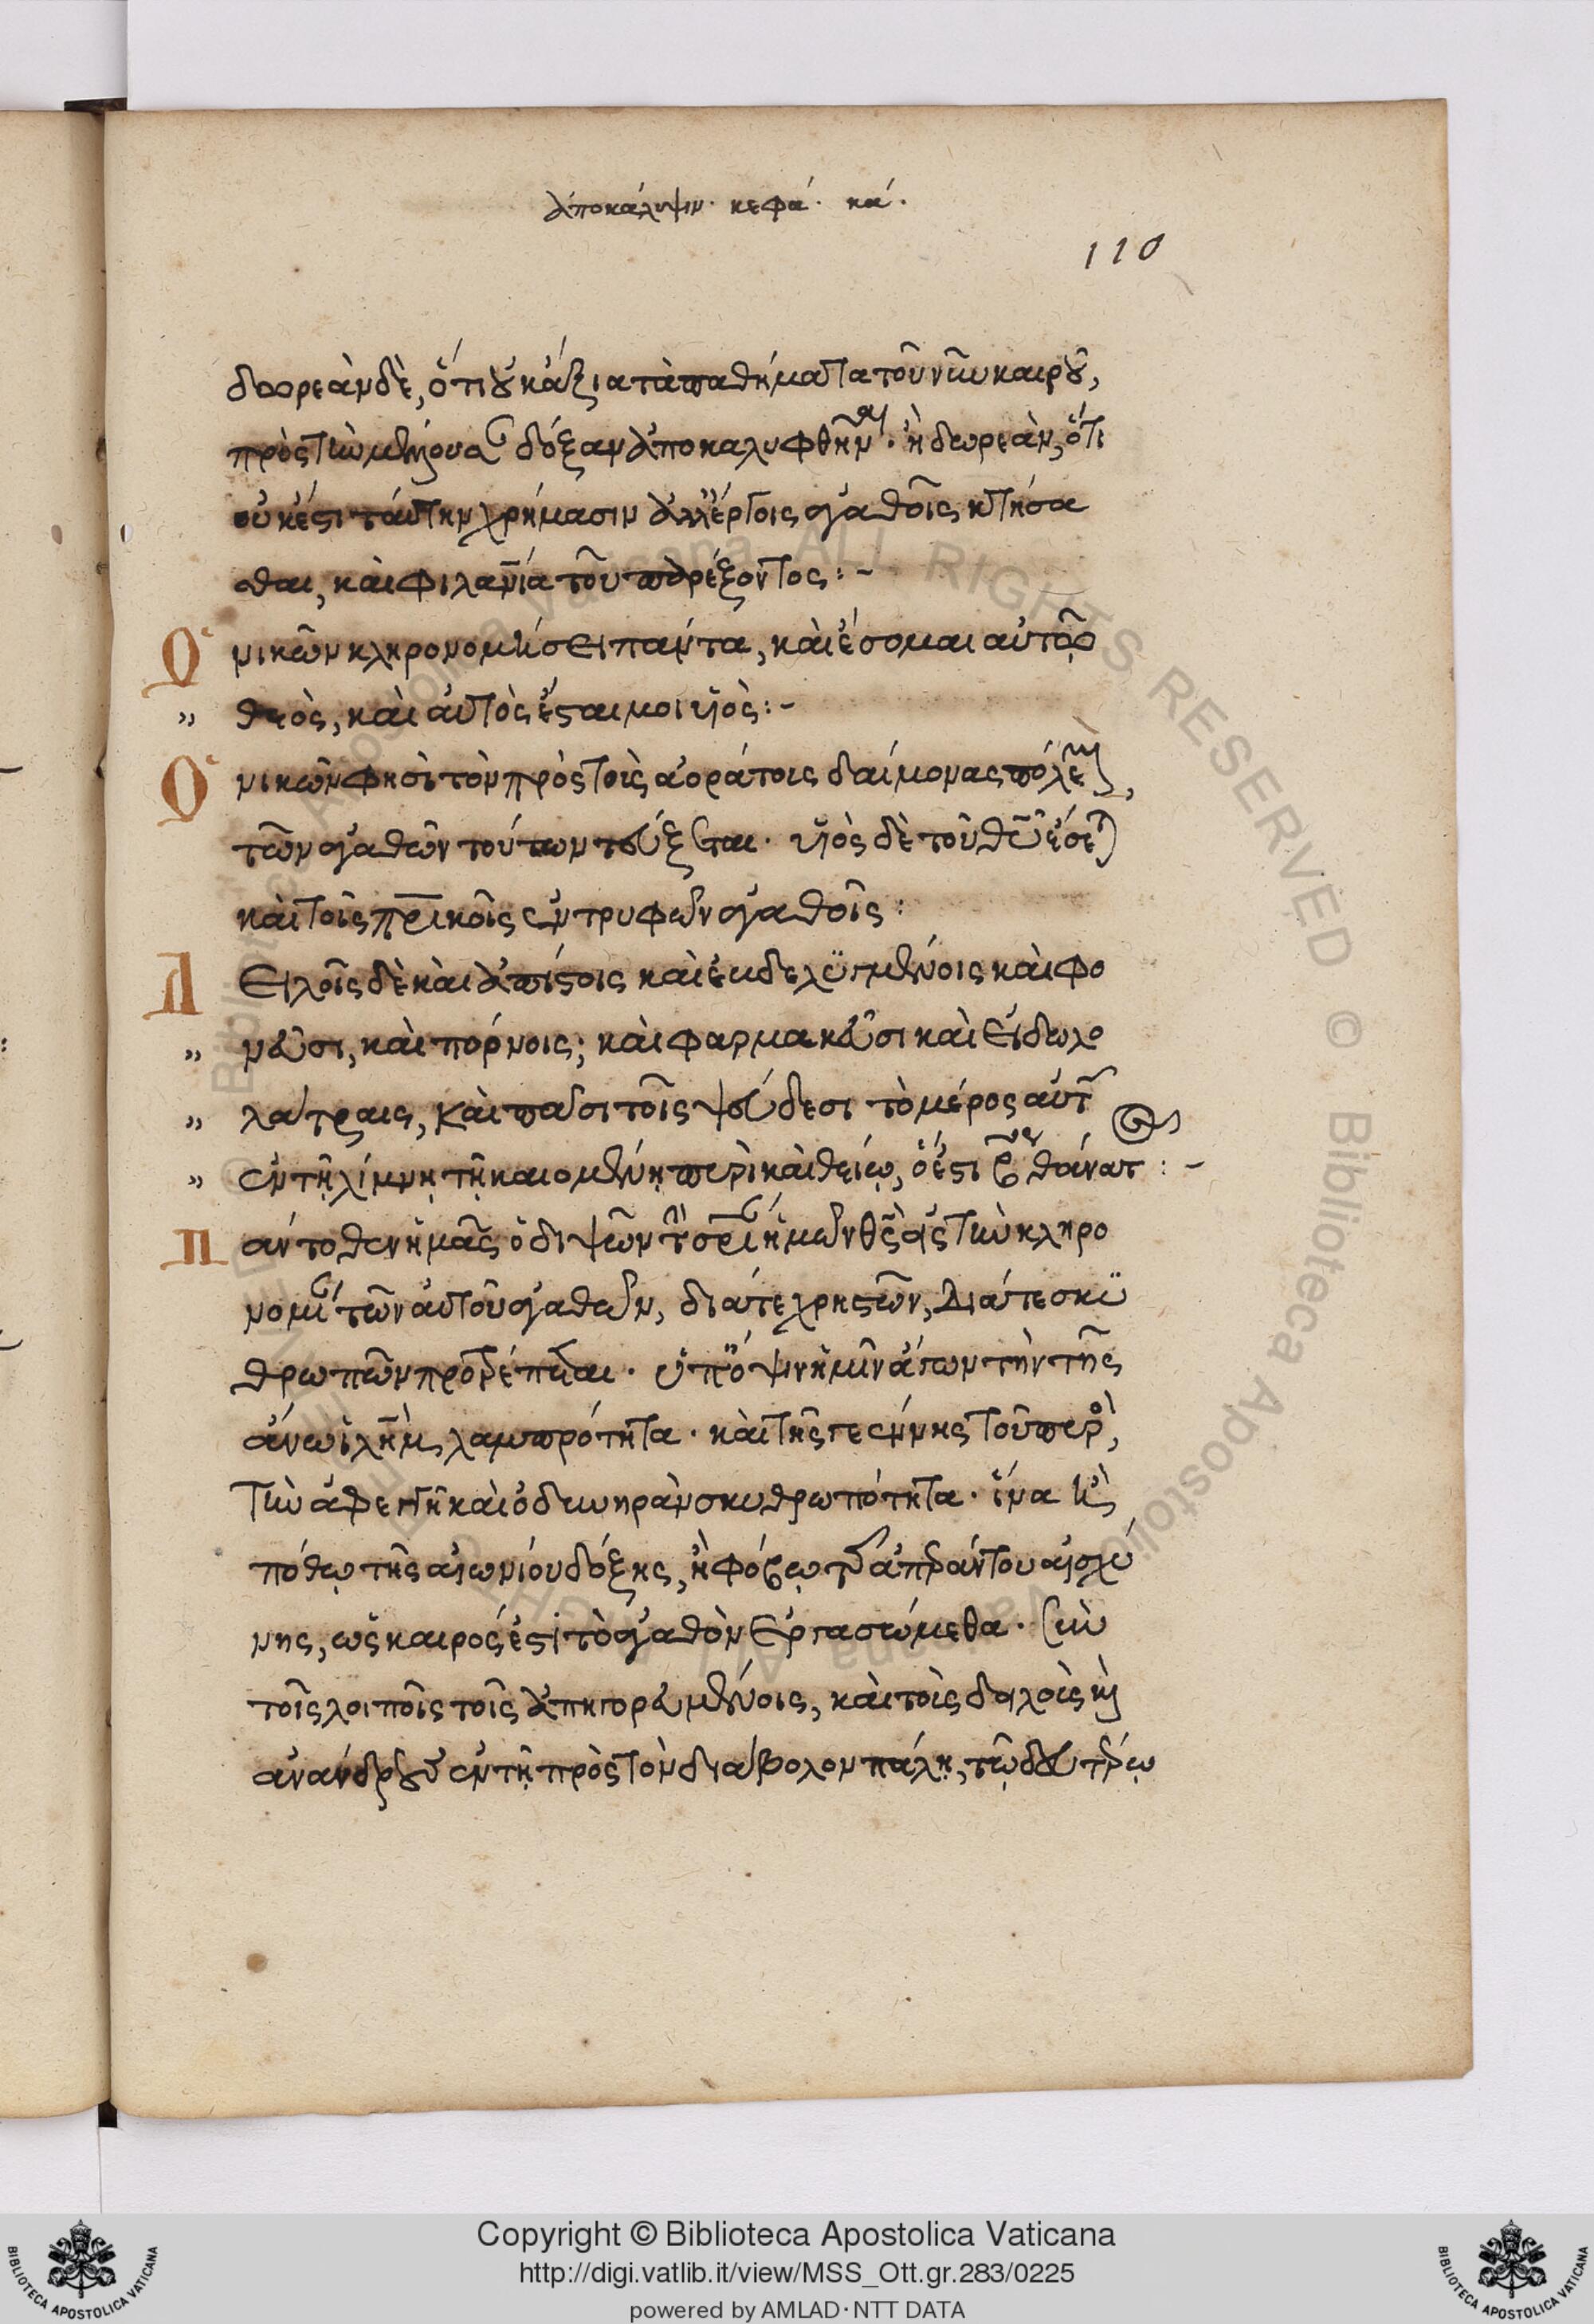 ἀποκάλυψιν· κεφά· κά·
110
δωρεὰν δὲ, ὅτι οὐκ ἄξια τὰ παθήματα τοῦ νῦν καιροῦ,
πρὸς τὴν μέλλουσαν δόξαν ἀποκαλυφθῆναι· ἢ δωρεὰν, ὅτι
οὐκ ἔστι ταύτην χρήμασιν ἀλλ' ἔργοις ἀγαθοῖς κτήσα
σθαι, καὶ φιλανία τοῦ παρέξοντος:-
Ὁ νικῶν κληρονομήσει πάντα, καὶ ἔσομαι αὐτῷ
» θεὸς, καὶ αὐτὸς ἔσται μοι υἱὸς:-
Ὁ νικῶν φησὶ τὸν πρὸς τοὺς ἀοράτοις δαίμονας πόλεμ,
τῶν ἀγαθῶν τούτων τεύξεται· υἱὸς δὲ τοῦ θυ ἔσεται
καὶ τοῖς πρικοῖς ἐντρυφῶν ἀγαθοῖς:
Δειλοῖς δὲ καὶ ἀπίστοις καὶ ἐβδελυγμένοις καὶ φο
» νεῦσι, καὶ πόρνοις, καὶ φαρμακεῦσι καὶ εἰδωλο
» λάτραις, καὶ πᾶσι τοῖς ψεύδεσι τὸ μέρος αὐτῶν
» ἐν τῇ λίμνῃ τῇ καιομένῃ πυρὶ καὶ θείῳ, ὅ ἐστι β θάνατος:-
Πάντοθεν ἡμᾶς ὁ διψῶν τὴν σρίαν ἡμῶν θς εἰς τὴν κληρο
νομίαν τῶν αὐτοῦ ἀγαθῶν, διά τε χρηστῶν, διά τε σκυ
θρωπῶν προτρέπεται· ὑπ' ὄψιν ἡμῖν ἄγων τὴν τῆς
ἄνω ἰλῆμ λαμπρότητα· καὶ τῆς γεέννης τοῦ πυρὸς,
τὴν ἀφεγγῆ καὶ ὀδυνηρὰν σκυθρωπότητα· ἵνα ἢ
πόθῳ τῆς αἰωνίου δόξης, ἢ φόβῳ τῆς ἀπεράντου αἰσχύ
νης, ὡς καιρός ἐστι τὸ ἀγαθὸν ἐργασώμεθα· σὺν
τοῖς λοιποῖς τοῖς ἀπηγορευμένοις, καὶ τοὺς δειλοὺς καὶ
ἀνάνδρους ἐν τῇ πρὸς τὸν διάβολον πάλῃ, τῷ δευτέρῳ
Copyright © Biblioteca Apostolica Vaticana
http://digi.vatlib.it/view/MSS_Ott.gr.283/0225
powered by AMLAD·NTT DATA